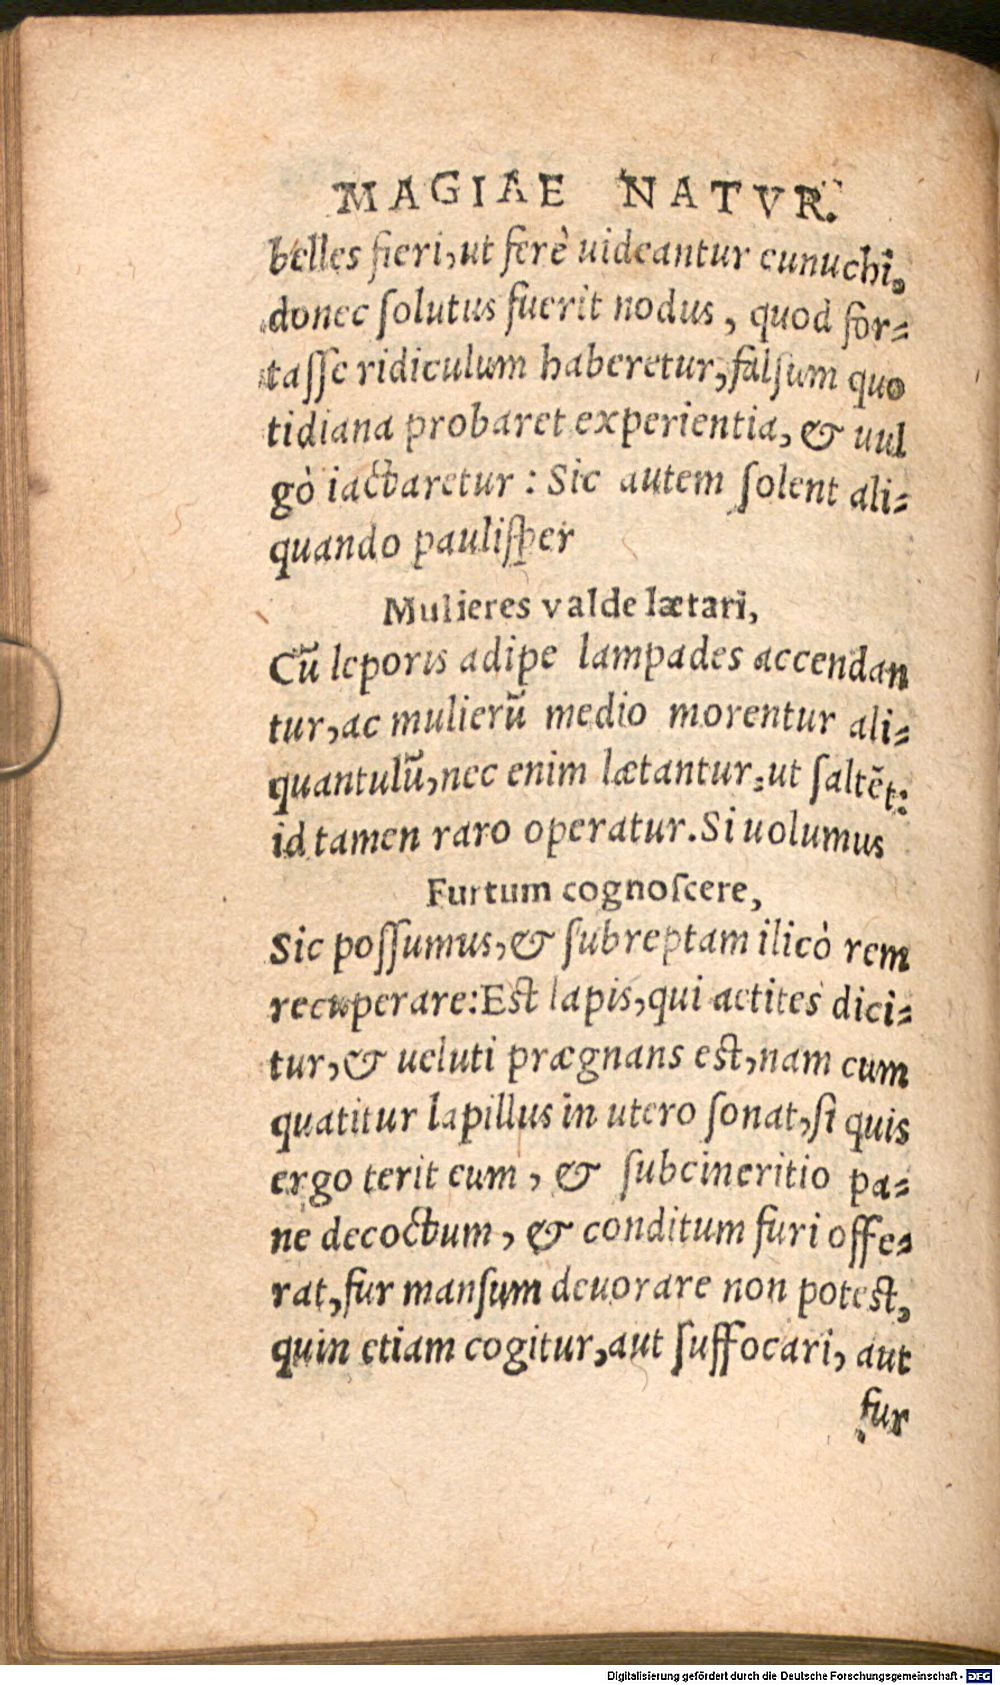 MAGIAE NATVR.
belles fieri, ut ferè uideantur eunuchi,
donec ſolutus fuerit nodus, quod for-
taſſe ridiculum haberetur, falſum quo
tidiana probaret experientia, & uul
gò iactaretur: Sic autem ſolent ali-
quando pauliſper
Mulieres valde lætari,
Cũ leporis adipe lampades accendan
tur, ac mulierũ medio morentur ali-
quantulũ, nec enim lætantur, ut ſaltẽt:
id tamen raro operatur. Si uolumus
Furtum cognoſcere,
Sic poſſumus, & ſubreptam ilicò rem
recuperare: Eſt lapis, qui aetites dici-
tur, & ueluti prægnans eſt, nam cum
quatitur lapillus in utero ſonat, ſi quis
ergo terit eum, & ſubcineritio pa-
ne decoctum, & conditum furi offe-
rat, fur manſum deuorare non poteſt,
quin etiam cogitur, aut ſuffocari, aut
fur
Digitalisierung gefördert durch die Deutsche Forschungsgemeinschaft - DFG